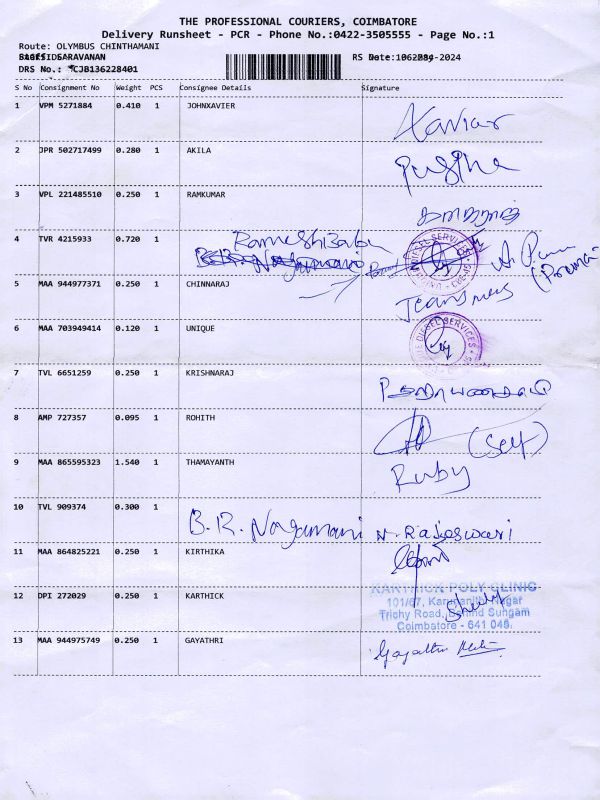 THE PROFESSIONAL COURIERS, COIMBATORE
Delivery Runsheet - PCR - Phone No.:0422-3505555 - Page No.:1
Route: OLYMBUS CHINTHAMANI
SARAVANAN RS
DRS No.: *CJB136228401
S No Consignment No Weight PCS Consignee Details Signature
1 VPM 5271884 0.410 1 JOHNXAVIER Xavier
2 JPR 502717499 0.280 1 AKILA
3 VPL 221485510 0.250 1 RAMKUMAR
4 TVR 4215933 0.720 1 RameshBabu
B.R. Nagamani
DIESEL SERVICES
5 MAA 944977371 0.250 1 CHINNARAJ
6 MAA 703949414 0.120 1 UNIQUE DIESEL SERVICES
7 TVL 6651259 0.250 1 KRISHNARAJ
8 AMP 727357 0.095 1 ROHITH (Self)
9 MAA 865595323 1.540 1 THAMAYANTH Ruby
10 TVL 909374 0.300 1 B.R. Nagamani N. Rajeswari
11 MAA 864825221 0.250 1 KIRTHIKA
12 DPI 272029 0.250 1 KARTHICK KARTHICK POLY CLINIC
101/67, Nagar
Trichy Road, Behind Sungam
Coimbatore - 641 045.
13 MAA 944975749 0.250 1 GAYATHRI Gayathri